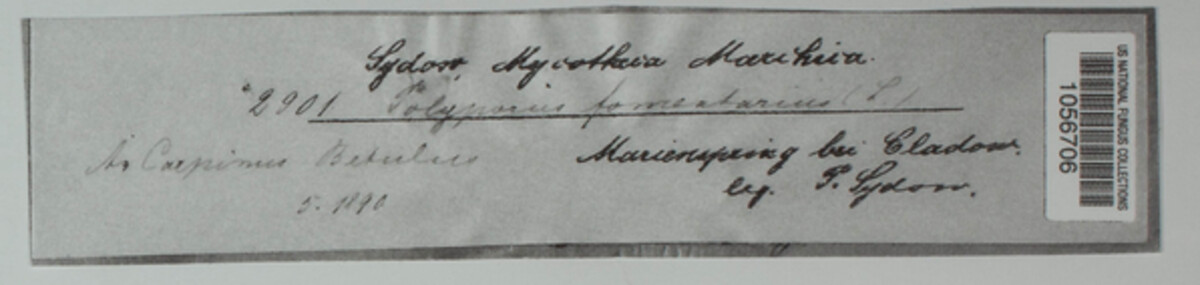 Sydow, Mycotheca Marchica.
2901 Polyporus fomentarius (L.)
An Carpinus Betulus
5. 1890
Marienspring bei Cladow.
leg. P. Sydow.
US NATIONAL FUNGUS COLLECTIONS
1056706